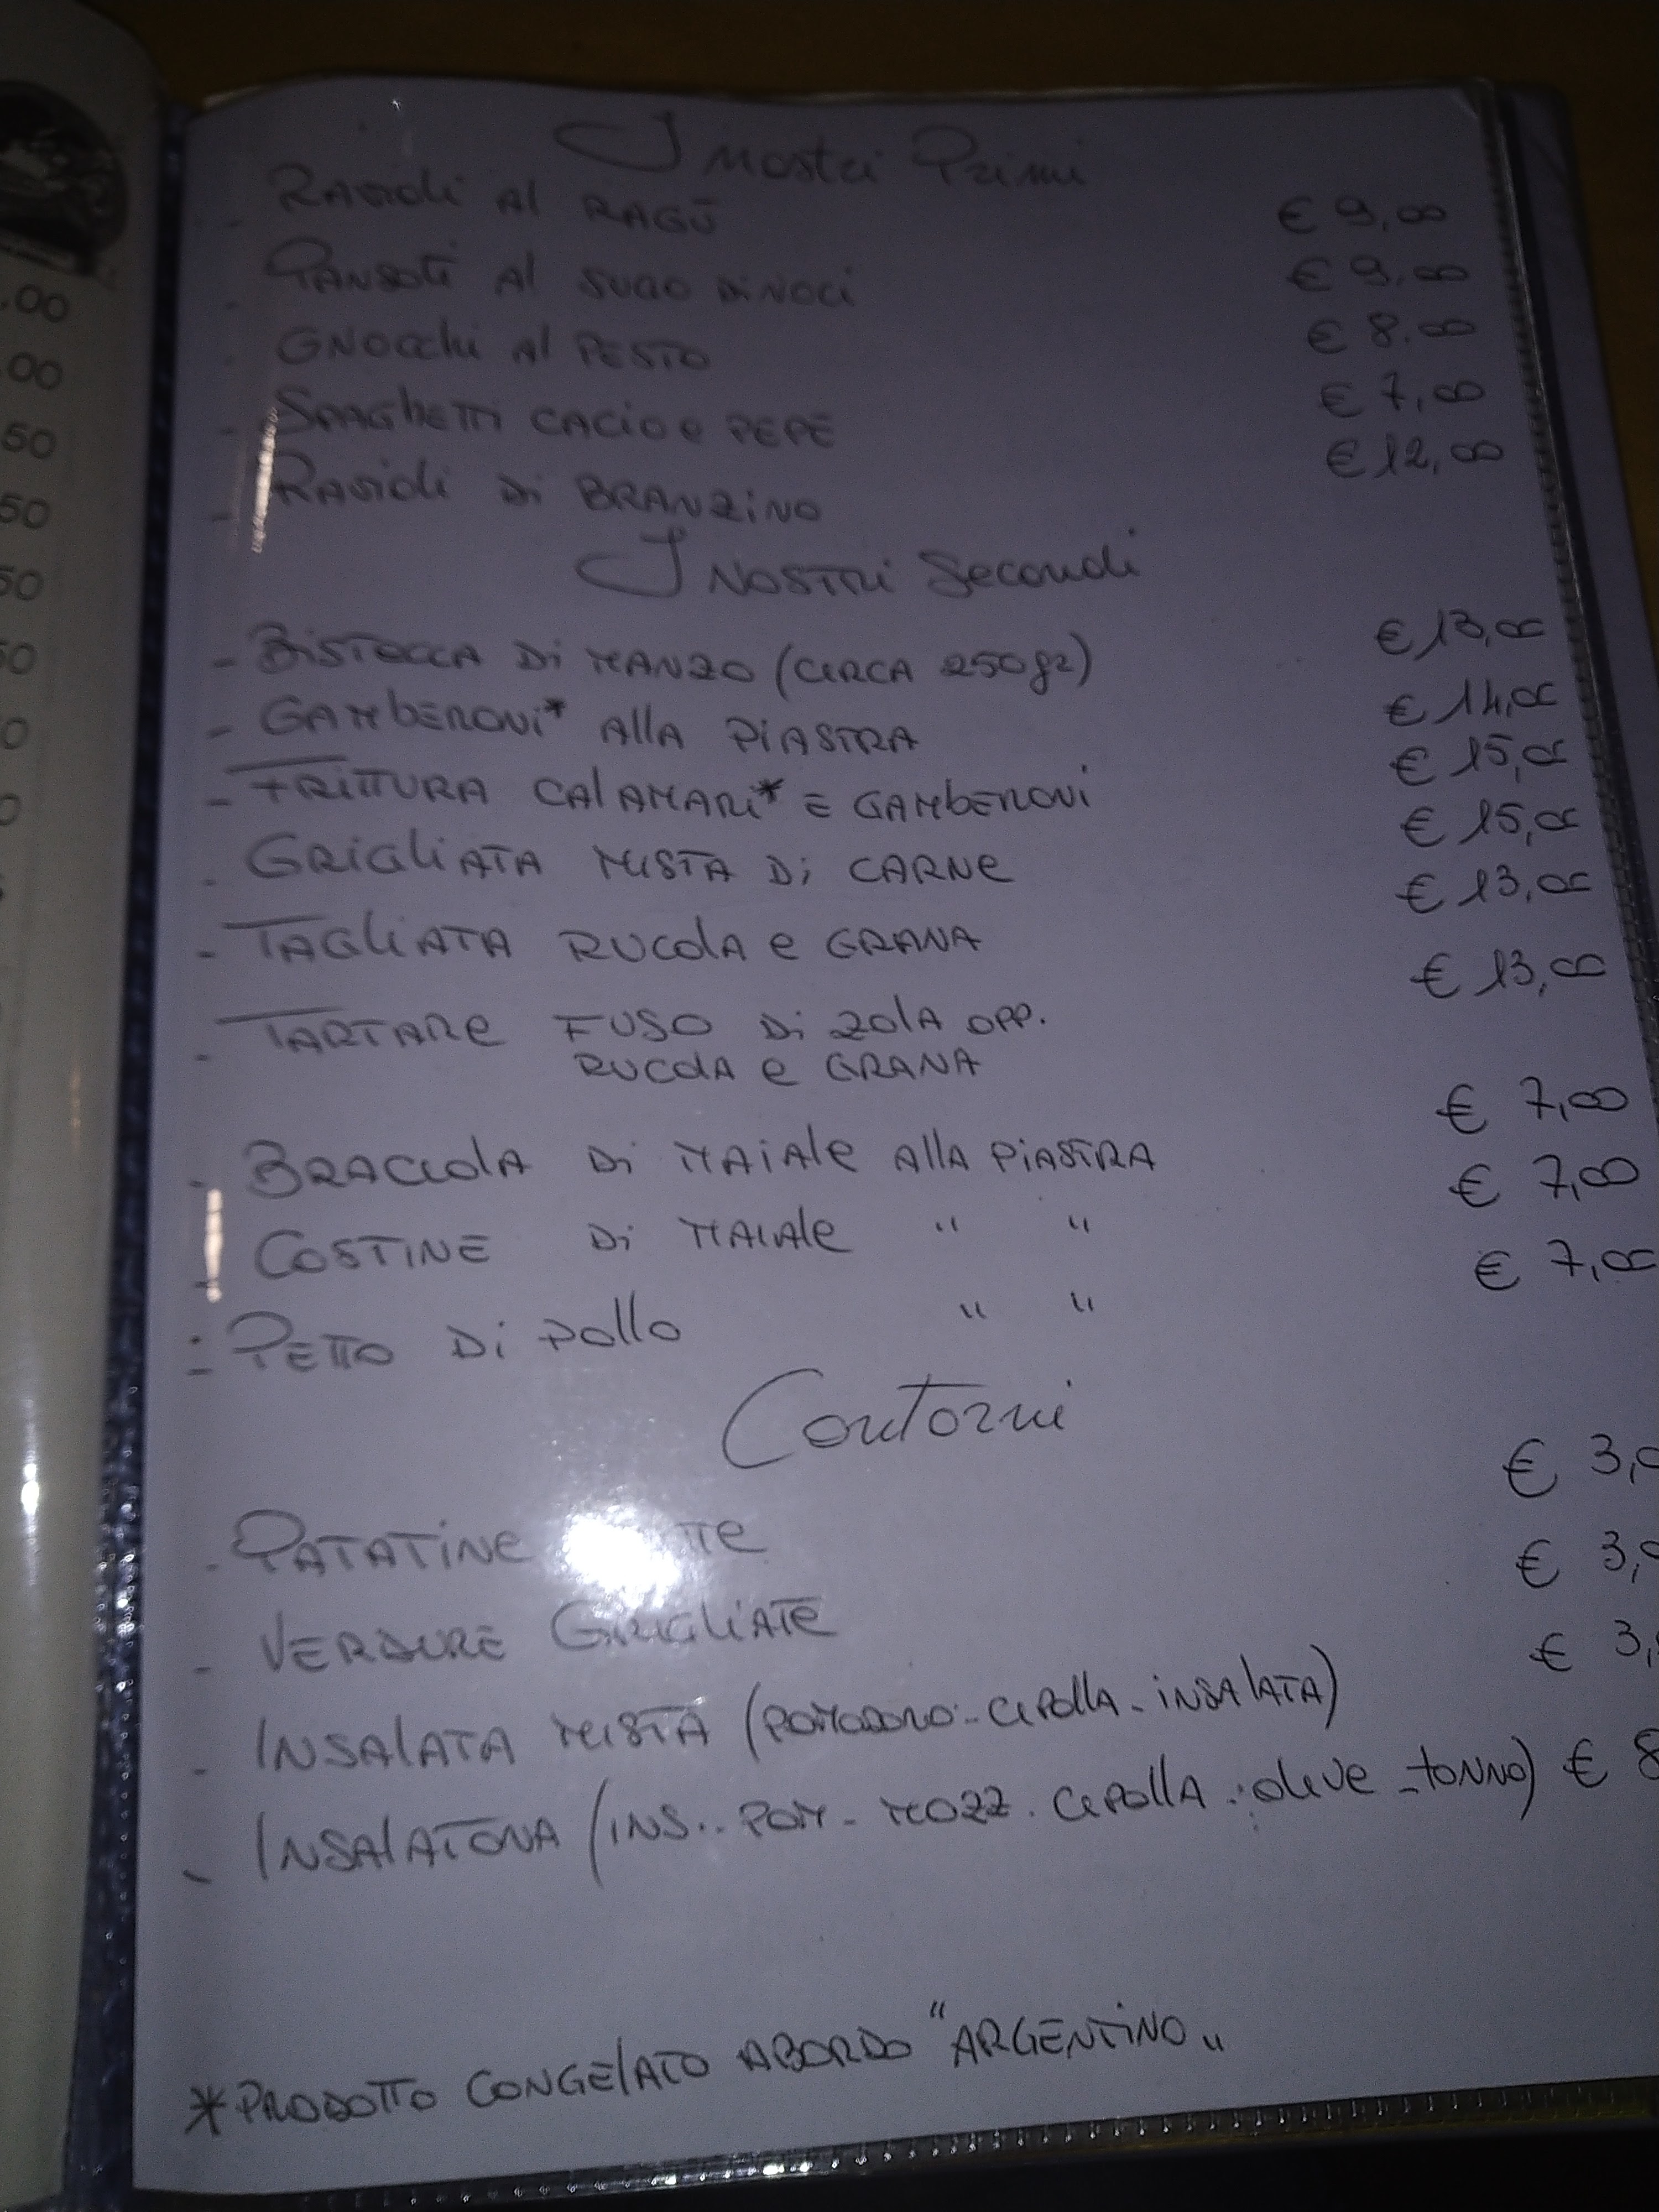 I nostri Primi
- Ravioli al RAGÙ € 9,00
- PANSOTI Al SUGO Di NOCI € 9,00
- GNOCCHi Al PESTO € 8,00
- SPAGHETTI CACIO e PEPE € 7,00
- RAVIOLI Di BRANZINO € 12,00
I NOSTRI Secondi
- BISTECCA Di MANZO (CIRCA 250gr) € 13,00
- GAMBERONI* AllA PIASTRA € 14,00
- FRITTURA CALAMARI* E GAMBERONI € 15,00
- GRIGLIATA MISTA Di CARNe € 15,00
- TAGLIATA RUCOLA e GRANA € 13,00
- TARTARe FUSO Di ZOLA OPP. € 13,00
RUCOLA e GRANA
- BRACIOLA Di MAIALe AllA PIASTRA € 7,00
- COSTINE Di MAIALe " " € 7,00
- PETTO Di Pollo " " € 7,00
Contorni
- PATATINe € 3,
- VERDURE GRIGLIATe € 3,
- INSALATA MISTA (POMODORO - CIPOLLA - INSALATA) € 3,
- INSALATONA (INS.. POM - MOZZ. CIPOLLA . olive - tonno) € 8
00
00
50
50
50
*PRODOTTO CONGELATO ABORDO "ARGENTINO"